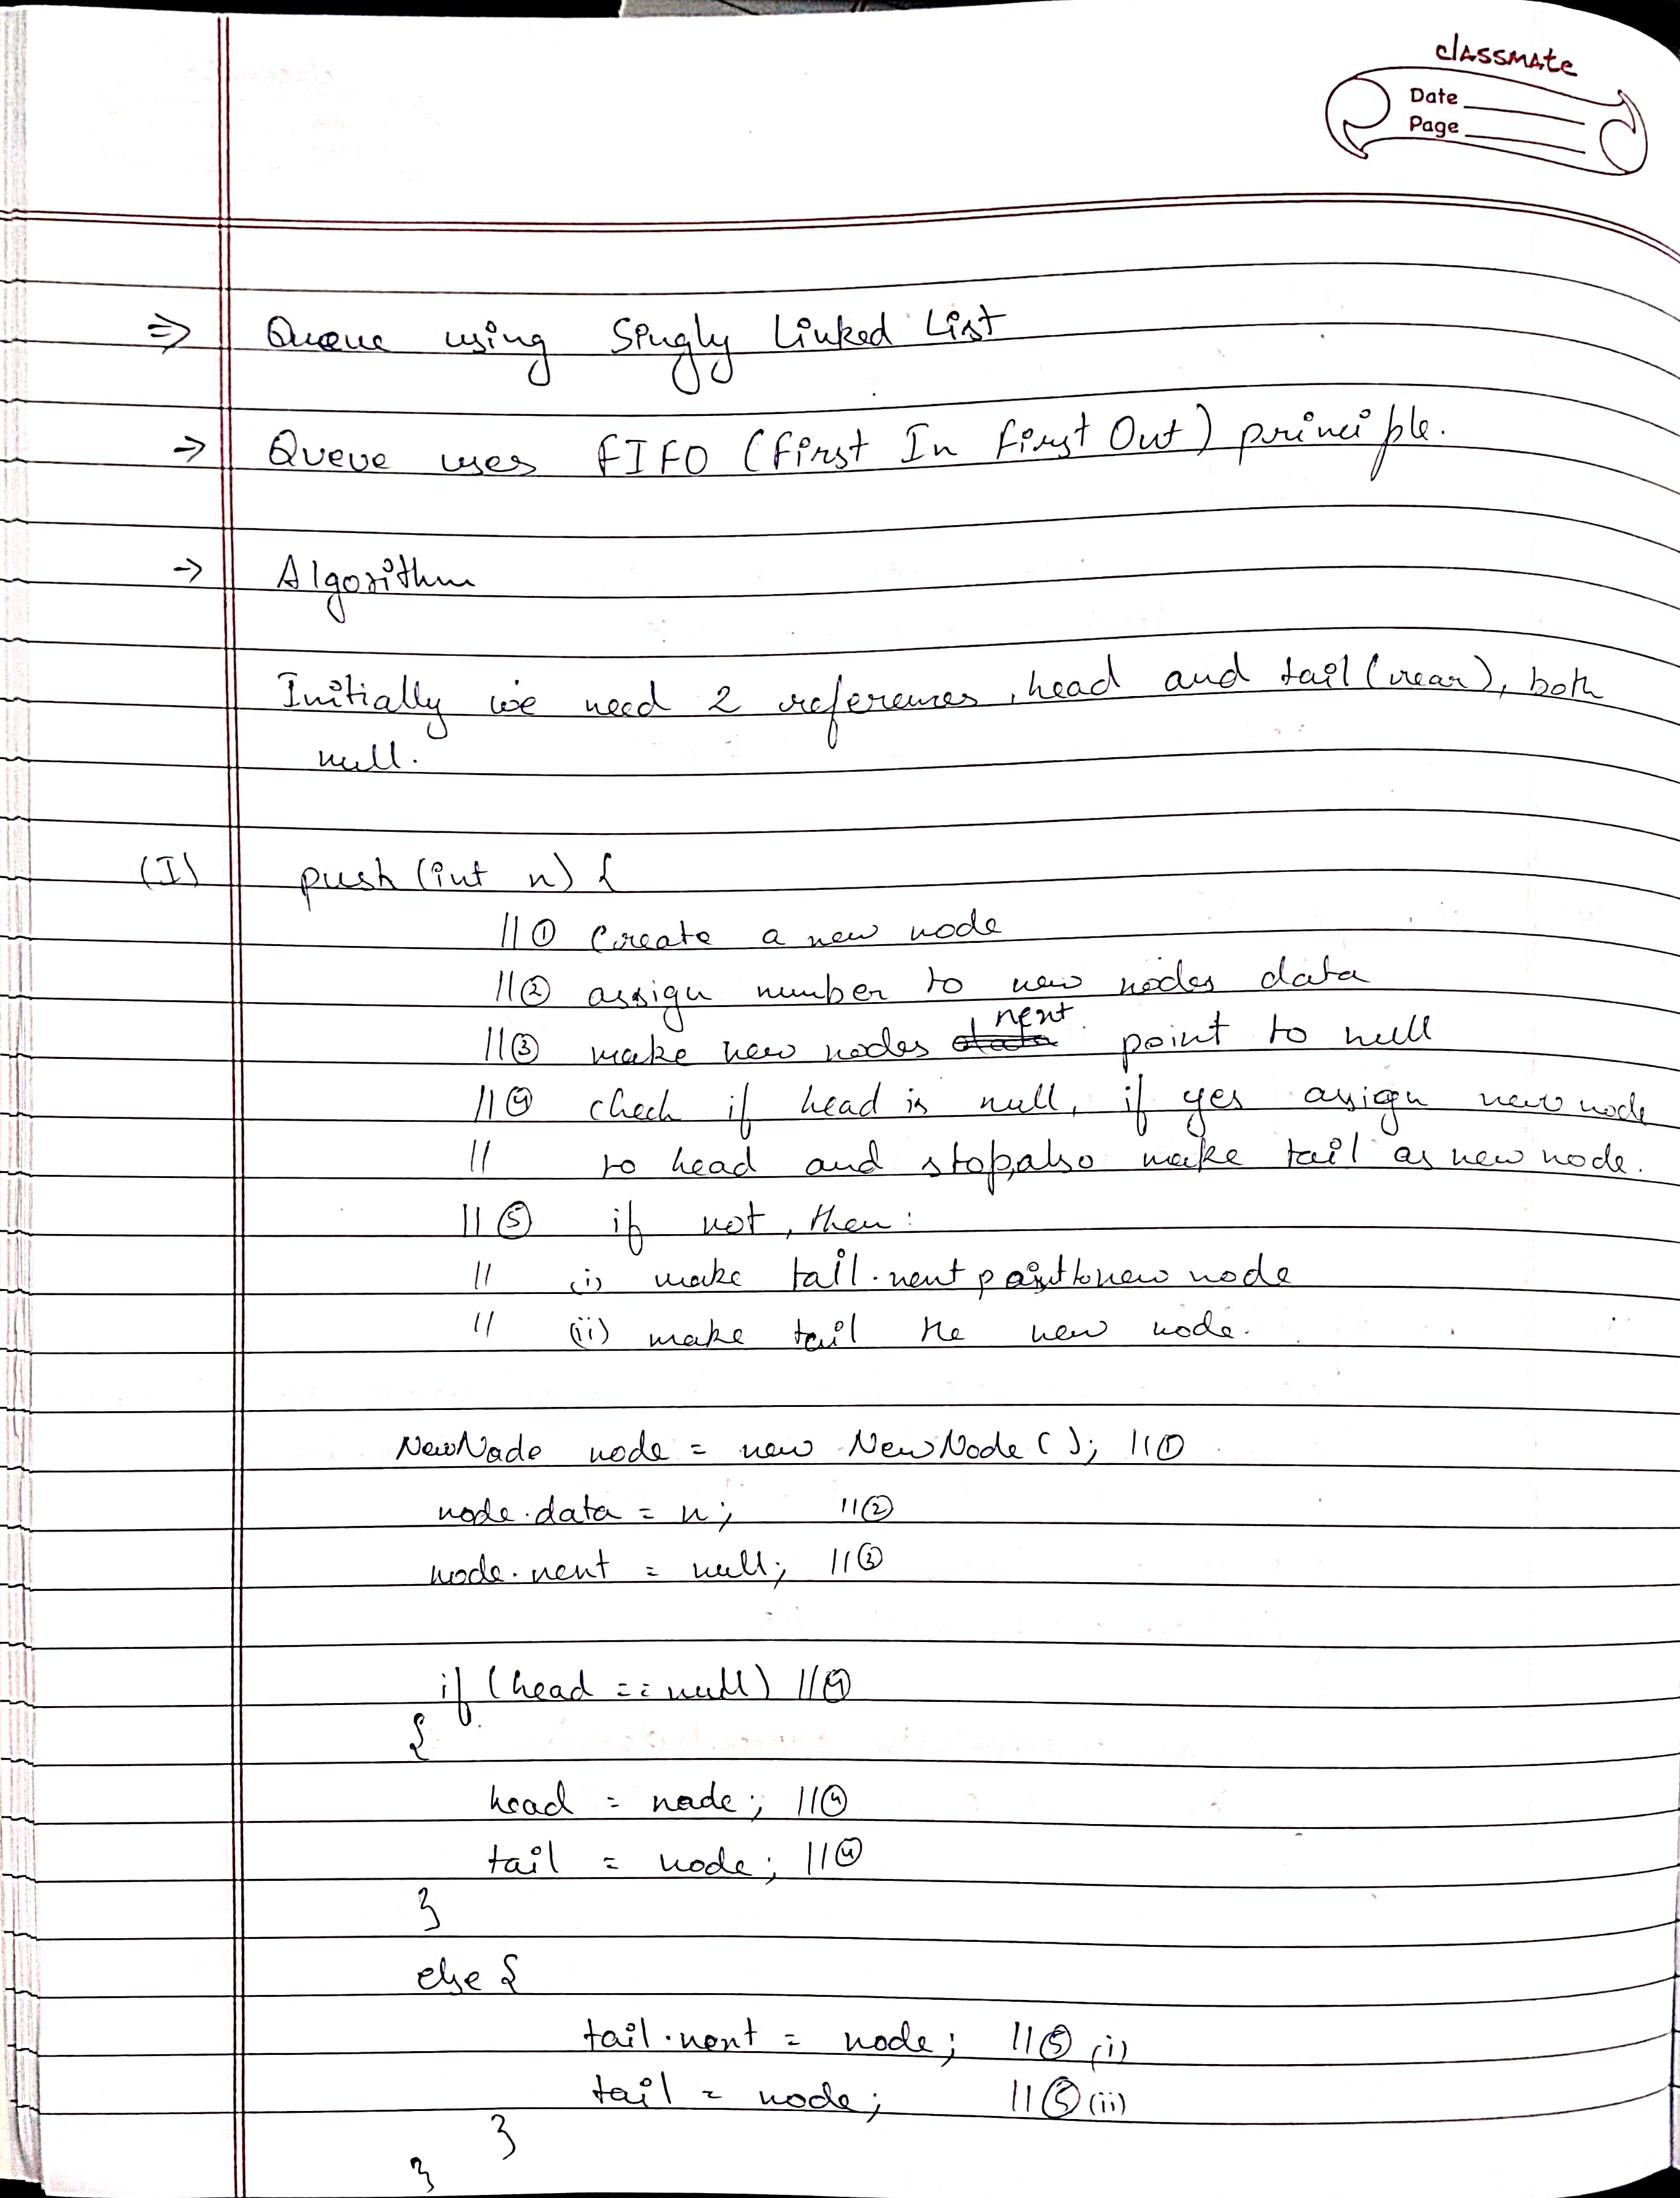 classmate
Date
Page
⇒ Queue using Singly Linked List
→ Queue uses FIFO (First In First Out) principle.
→ Algorithm
Initially we need 2 references, head and tail (rear), both
null.
(I) push (int n) {
// ① Create a new node
// ② assign number to new nodes data
// ③ make new nodes data next point to null
// ④ check if head is null, if yes assign new node
// to head and stop, also make tail as new node.
// ⑤ if not, then:
// (i) make tail.next point to new node
// (ii) make tail the new node.
NewNode node = new NewNode(); // ①
node.data = n; // ②
node.next = null; // ③
if (head == null) // ④
{
head = node; // ④
tail = node; // ④
}
else {
tail.next = node; // ⑤ (i)
tail = node; // ⑤ (ii)
}
}